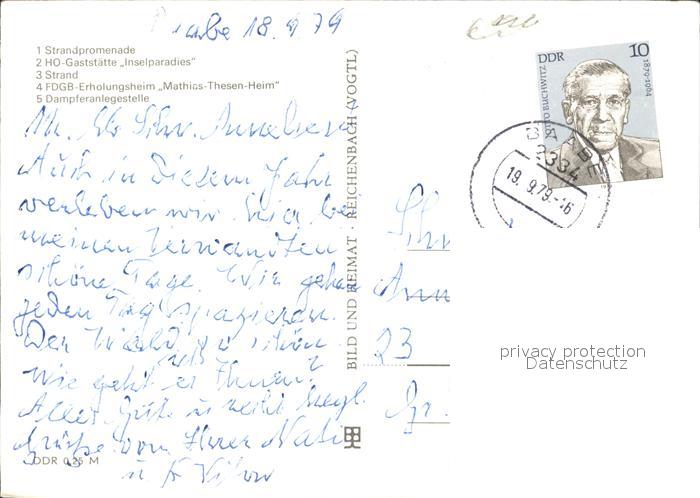 18. 9 79
1 Strandpromenade
2 HO-Gaststätte „Inselparadies"
3 Strand
4 FDGB-Erholungsheim „Mathias-Thesen-Heim"
5 Dampferanlegestelle
Auch in diesem Jahr
verleben wir hier be
meinen Verwandten
schöne Tage. Wir gehen
jeden Tag spazieren.
Der Wald so schön.
Wie geht es Ihnen?
Alles Gute u recht
Grüße von Ihrer
u
DDR 0,25 M
BILD UND HEIMAT · REICHENBACH (VOGTL)
DDR 10
OTTO BUCHWITZ
1879-1964
BAABE
2334
19. 9.79.-16
23
privacy protection
Datenschutz